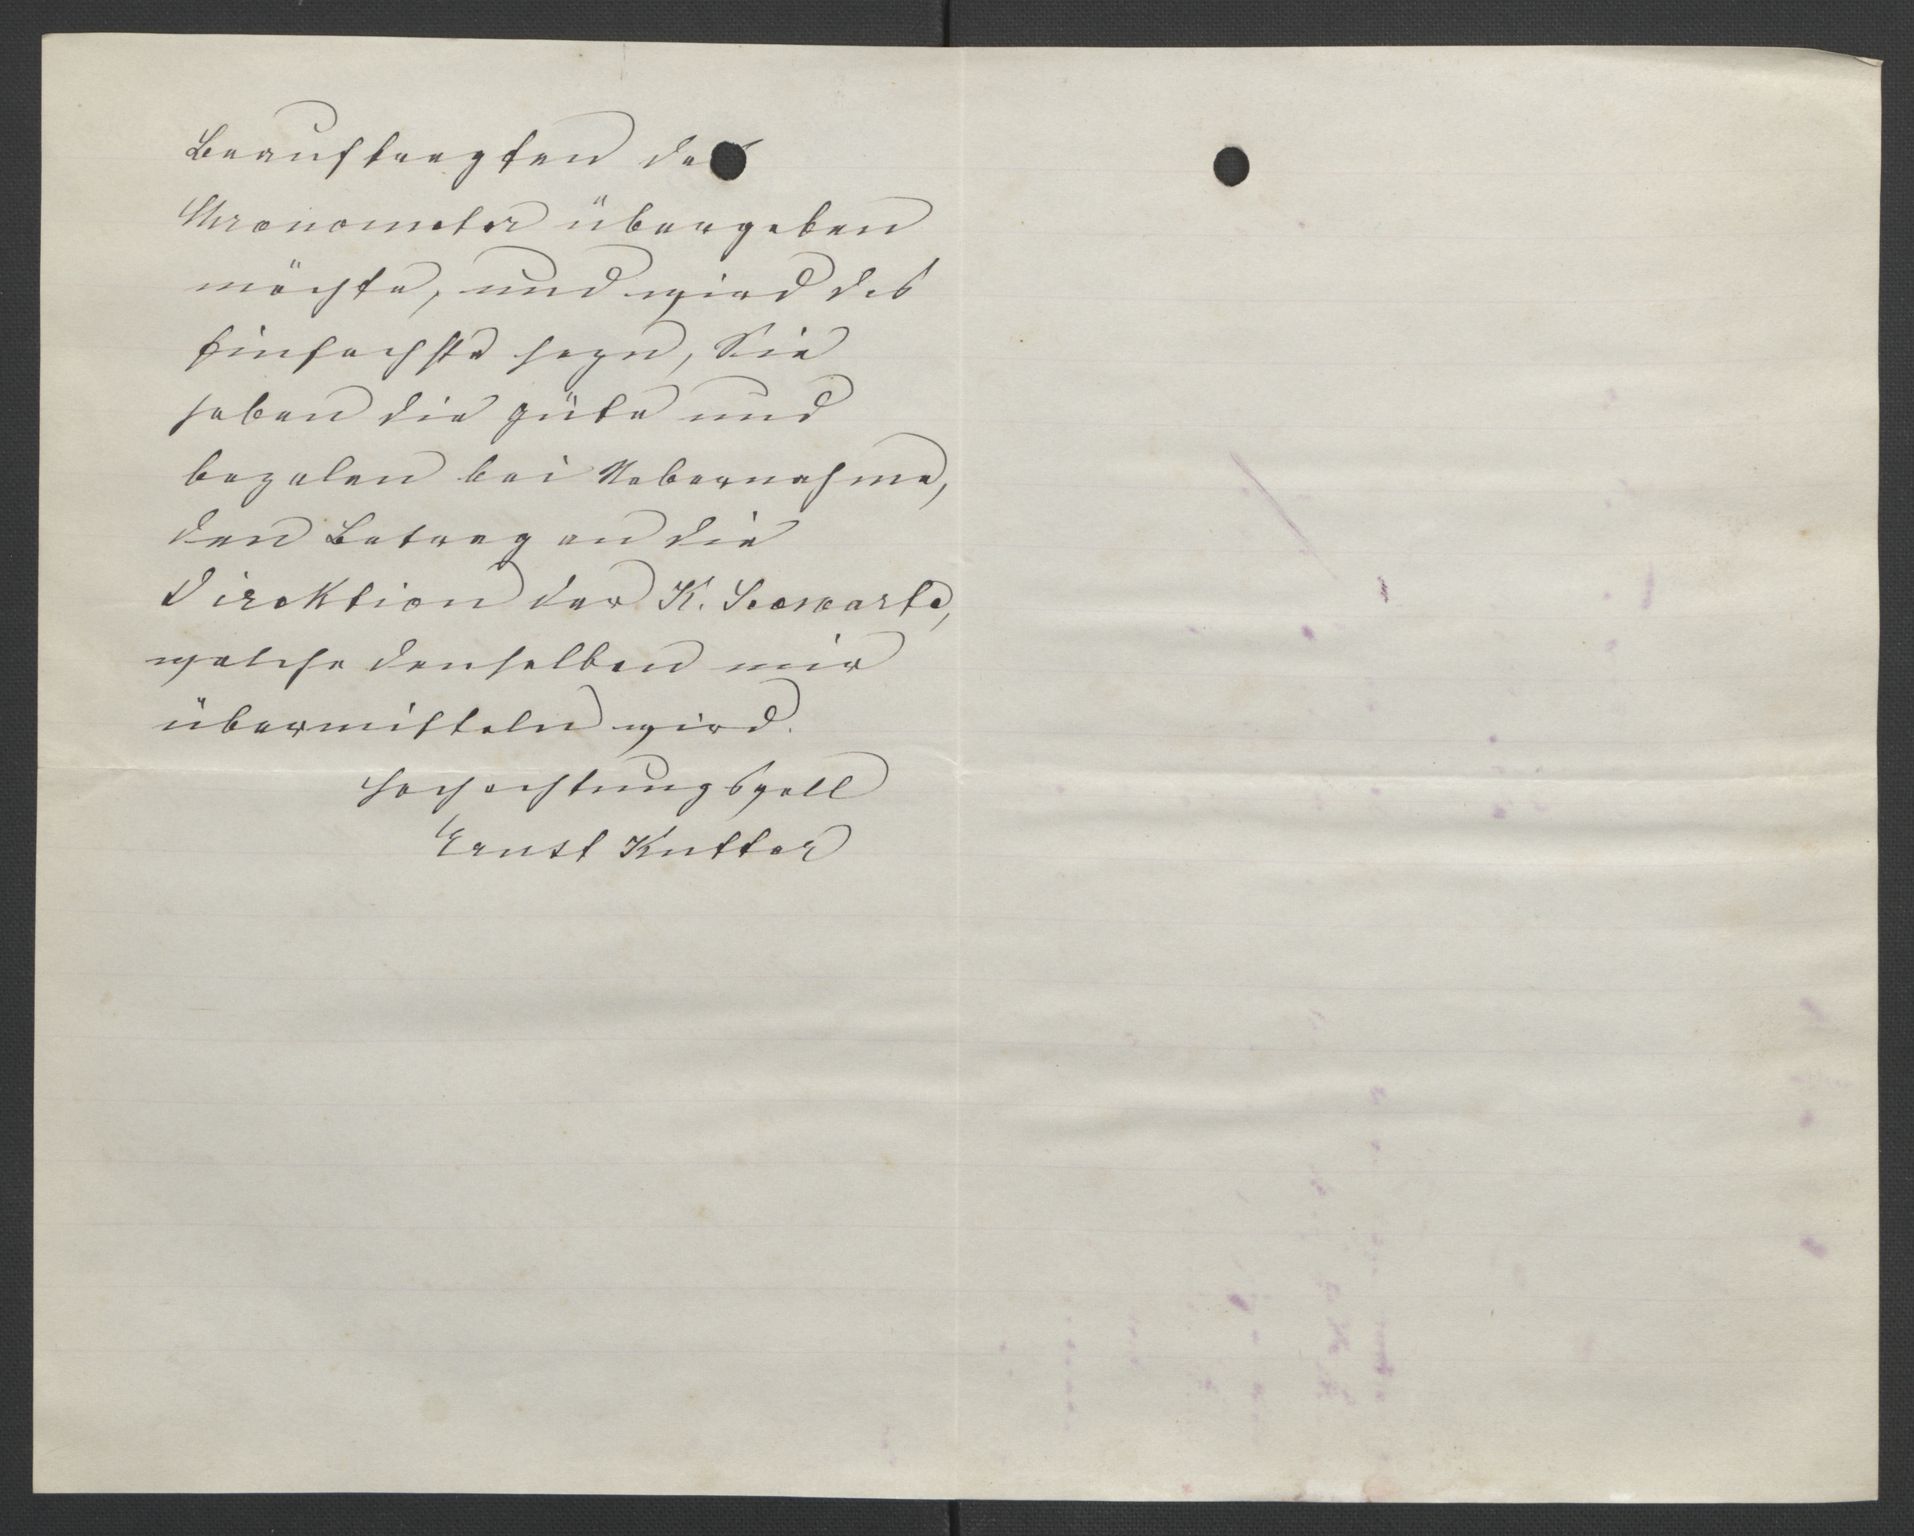 Beauftragten das
Chronometer übergeben
möchte, und wird das
Einfachste seyn, Sie
haben die Güte und
bezalen bei Uebernahme,
den Betrag an die
Direktion der K. Seewarte,
welche denselben mir
übermitteln wird.
Hochachtungsvoll
Ernst Kutter